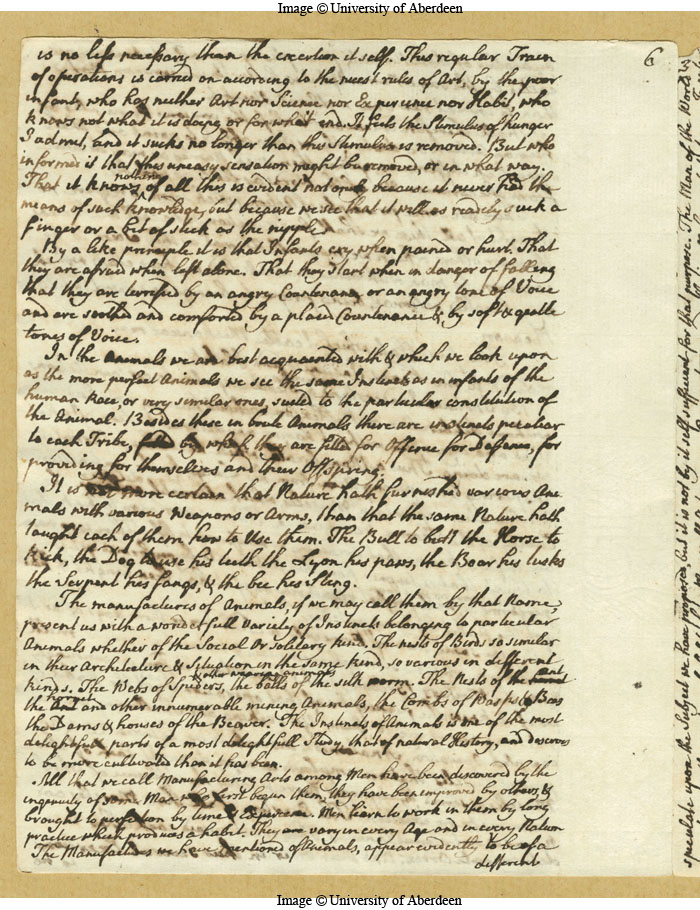 Image © University of Aberdeen
6
is no less necessary than the exertion it self. This regular Train
of operations is carried on according to the nicest rules of Art, by the poor
infant, who has neither Art nor Science nor Experience nor Habit, who
knows not what it is doing or for what end. It feels the Stimulus of hunger
I admit, and it sucks no longer than this Stimulus is removed. But who
informed it that this uneasy sensation might be removed, or in what way.
That it knows nothing of all this is evident not only because it never had the
means of such knowledge, but because we see that it will as readily suck a
finger or a bit of stick as the nipple.
By a like principle it is that Infants cry when pained or hurt. That
they are afraid when left alone. That they start when in danger of falling
that they are terrified by an angry Countenance or an angry tone of Voice
and are soothed and comforted by a placid Countenance & by soft & gentle
tones of Voice.
In the Animals we are best acquainted with & which we look upon
as the more perfect Animals we see the same Instincts as in infants of the
human Race, or very similar ones, suited to the particular constitution of
the Animal. Besides these in brute Animals there are instincts peculiar
to each Tribe, by which they are fitted for Offence for Deffence, for
providing for themselves and their Offspring.
It is not more certain that Nature hath furnished various Ani
mals with various Weapons or Arms, than that the same Nature hath
taught each of them how to Use them. The Bull to butt the Horse to
kick, the Dog to use his teeth the Lyon his paws, the Boar his tusks
the Serpent his fangs, & the bee his sting.
The manufactures of Animals, if we may call them by that Name,
present us with a wonderfull variety of Instincts belonging to particular
Animals whether of the Social Or solitary kind. The nests of Birds so similar
in their Architecture & Situation in the same kind, so various in different
kinds. The Webs of Spiders, & other weaving animals the balls of the silk worm. The Nests of the ant
the and other innumerable mining Animals, the Combs of Wasps & Bees
the Dams & houses of the Beaver. The Instincts of Animals is one of the most
delightfull parts of a most delightfull Study, that of natural History, and deserves
to be more cultivated than it has been.
All that we call Manufacturing Arts among Men have been discovered by the
ingenuity of some Man who first begun them, they have been improved by others, &
brought to perfection by time & Experience. Men learn to work in them by long
practice which produces a habit. They are vary in every Age and in every Nation
The Manufactures we have mentioned of Animals, appear evidently to be of a
different
speculate upon the Subject we have proposed, but it is not by it self sufficient for that purpose. The Man of the World
Image © University of Aberdeen